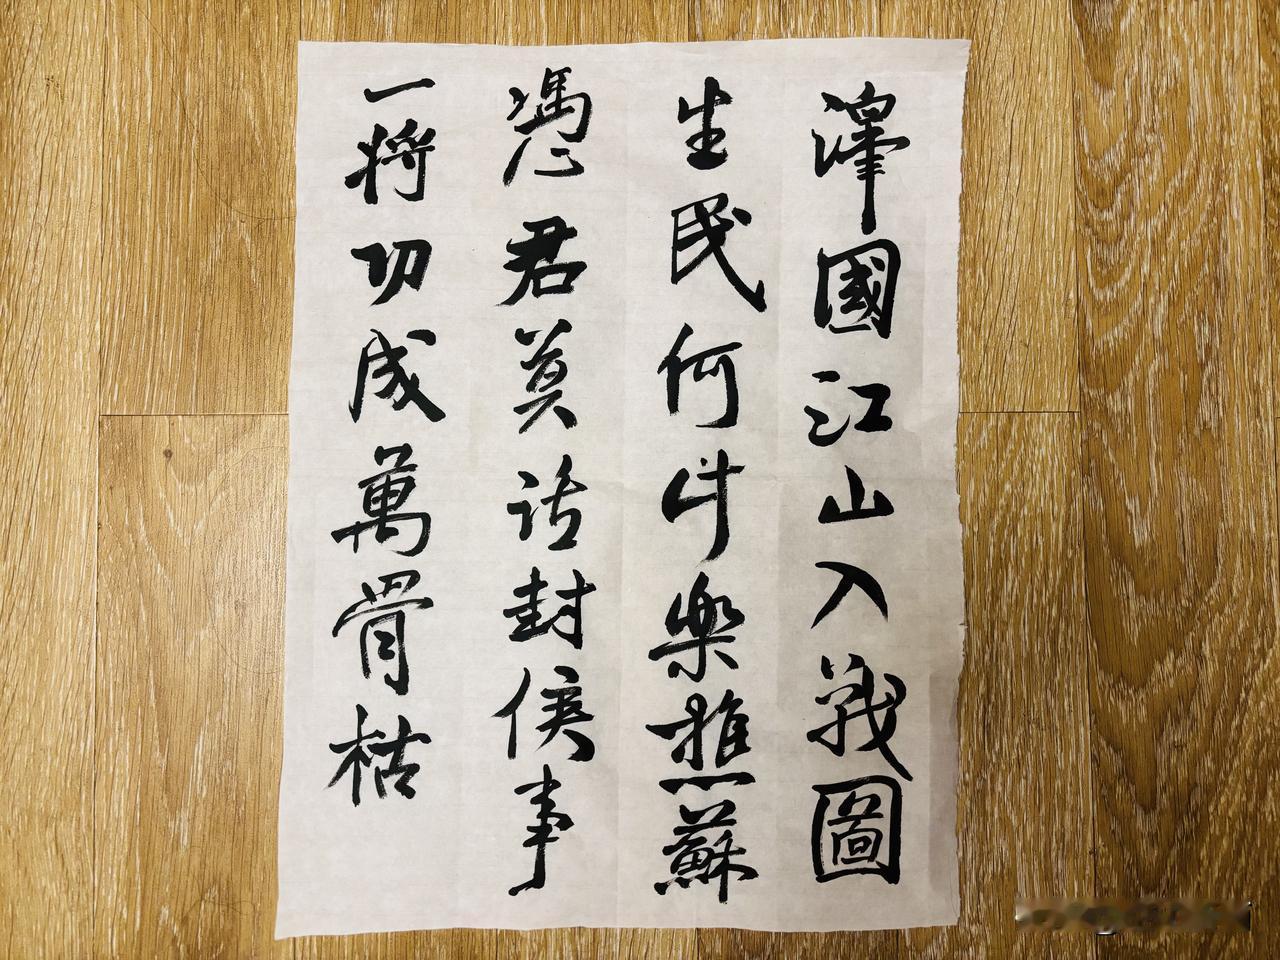 澤國江山入戰圖
生民何計樂樵蘇
憑君莫話封侯事
一將功成萬骨枯